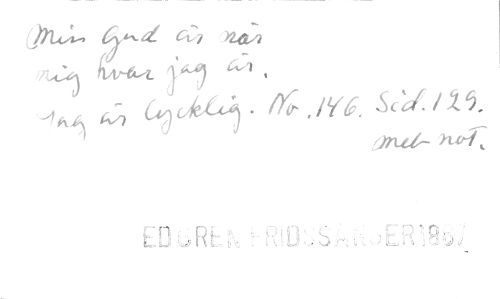 Min Gud är när
mig hvar jag är.
Jag är lycklig. No. 146. Sid. 129.
med not.
EDGREN FRIDSSÅNGER 1867